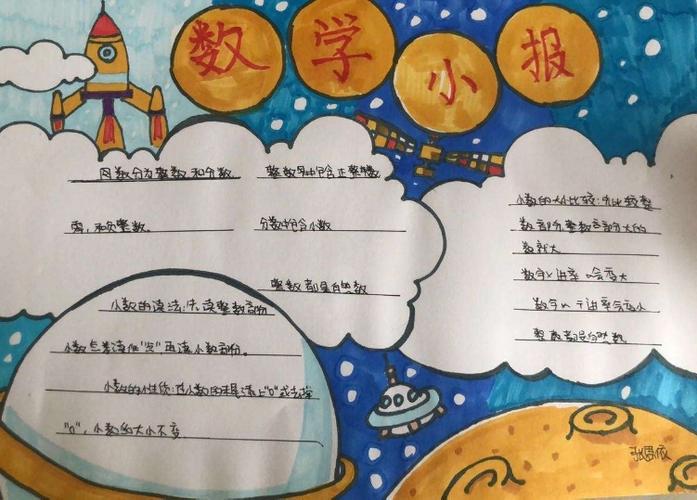 数学小报
因数分为整数和分数
零,和负整数。
整数中包含正整数
分数中包含小数
整数都是自然数
小数的读法:先读整数部份
小数点要读作"点"再读小数部份。
小数的小性质:在小数的末尾添上"0"或去掉
"0",小数的大小不变
小数的大小比较:先比较整
数部分整数部分大的
数就大
数会变大
数会变小
整数都是自然数